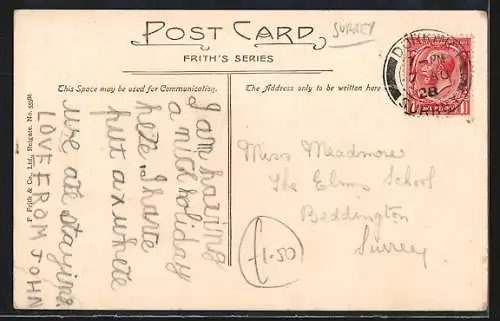 POST CARD
SURREY
FRITH'S SERIES
This Space may be used for Communication.
The Address only to be written here
DORKING
PM
28
SURREY
F. Frith & Co., Ltd., Reigate. No.
I am having
a nice holiday
here I have
put a x where
we are staying
LOVE FROM JOHN
Miss Meadmore
The Elms School
Beddington
Surrey
£1.50